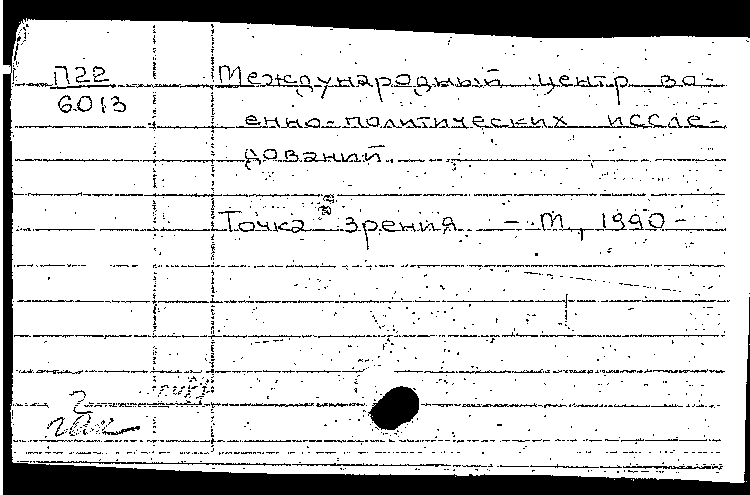 П22
6013
Международный центр во-
енно-политических иссле-
дований.
Точка зрения. – М., 1990-